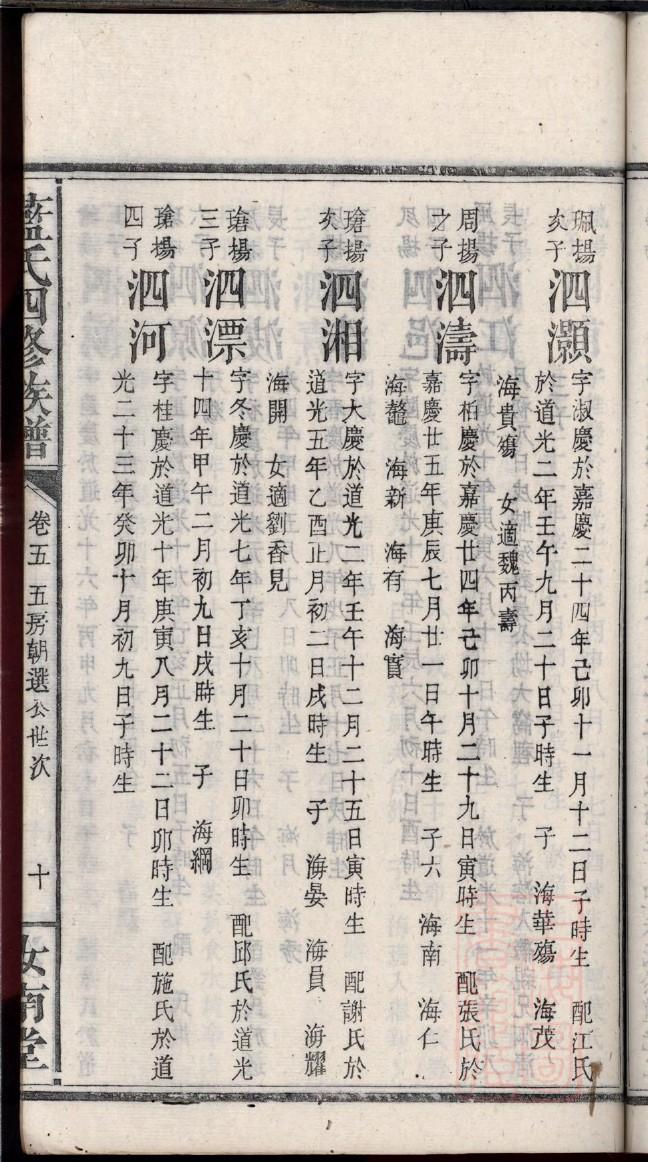 珮揚
次子
泗灝
字淑慶於嘉慶二十四年己卯十一月十二日子時生　配江氏
於道光二年壬午九月二十日子時生　子　海華殤　海茂
海貴殤　女適魏丙壽
周揚
之子
泗濤
字柏慶於嘉慶廿四年己卯十月二十九日寅時生　配張氏於
嘉慶廿五年庚辰七月廿一日午時生　子六　海南　海仁
海鼇　海新　海有　海實
瑲揚
次子
泗湘
字大慶於道光二年壬午十二月二十五日寅時生　配謝氏於
道光五年乙酉正月初二日戌時生　子　海晏　海員　海耀
海開　女適劉香見
瑲揚
三子
泗漂
字冬慶於道光七年丁亥十月二十日卯時生　配邱氏於道光
十四年甲午二月初九日戌時生　子　海綱
瑲揚
四子
泗河
字桂慶於道光十年庚寅八月二十二日卯時生　配施氏於道
光二十三年癸卯十月初九日子時生
藍氏四修族譜
卷五　五房朝選公世次
十
汝南堂